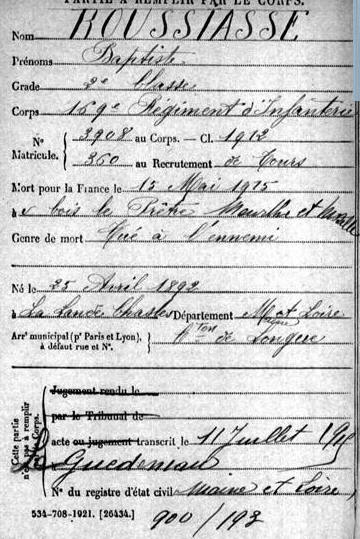 PARTIE À REMPLIR PAR LE CORPS.
Nom ROUSSIASSE
Prénoms Baptiste
Grade 2e Classe
Corps 169e Régiment d'Infanterie
N° Matricule. { 3908 au Corps. — Cl. 1912
360 au Recrutement de Tours
Mort pour la France le 12 Mai 1915
à bois le Prêtre Meurthe et Moselle
Genre de mort Tué à l'ennemi
Né le 25 Avril 1892
à La Lande Chasles Département Maine et Loire
Arr^t municipal (p^r Paris et Lyon), à défaut rue et N°. { C^ton de Longué
Cette partie n'est pas à remplir par le Corps.
Jugement rendu le
par le Tribunal de
acte ou jugement transcrit le 11 Juillet 1915
Guédéniau
N° du registre d'état civil Maine et Loire
534-708-1921. [26434.]
900/193